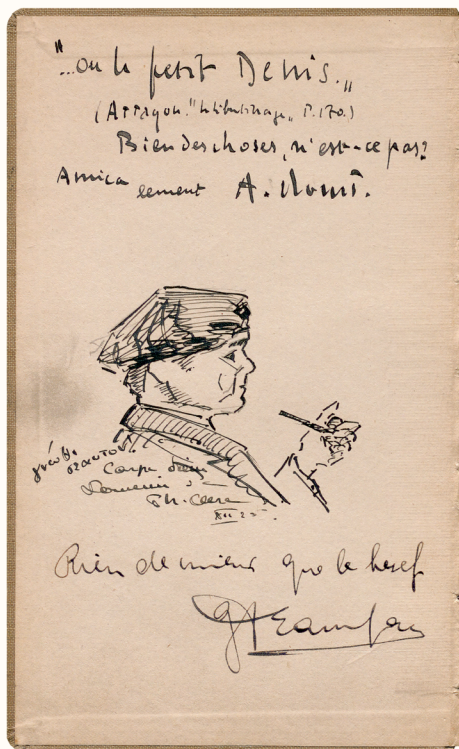 "...ou le petit Denis."
(Arragon. "Le libertinage" P.170.)
Bien des choses, n'est-ce pas?
Amicalement A.
γνῶθι
σεαυτον.
Carpe diem
Souvenir d
Th.
XII 25
Rien de mieux que le